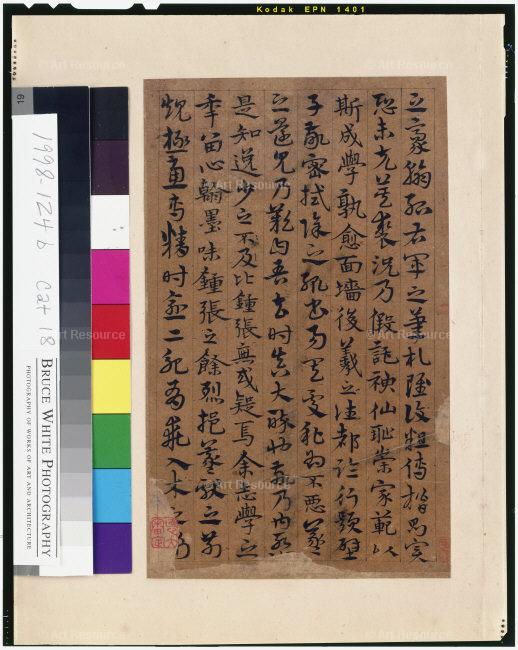 Kodak EPN 1401
之豪翰紹右軍之筆札雖復粗傳楷則實
恐未克箕裘況乃假託神仙恥崇家範以
斯成學孰愈面墻後羲之往都臨行題壁
子敬密拭除之輒書易其處私為不惡羲
之還見乃歎曰吾去時真大醉也敬乃內慙
是知逸少之不及比鍾張無或疑焉余志學之
年留心翰墨味鍾張之餘烈挹羲獻之前
規極慮專精時逾二紀有乖入木之
19
1998-124 b Cat 18
BRUCE WHITE PHOTOGRAPHY
PHOTOGRAPHY OF WORKS OF ART AND ARCHITECTURE
© Art Resource